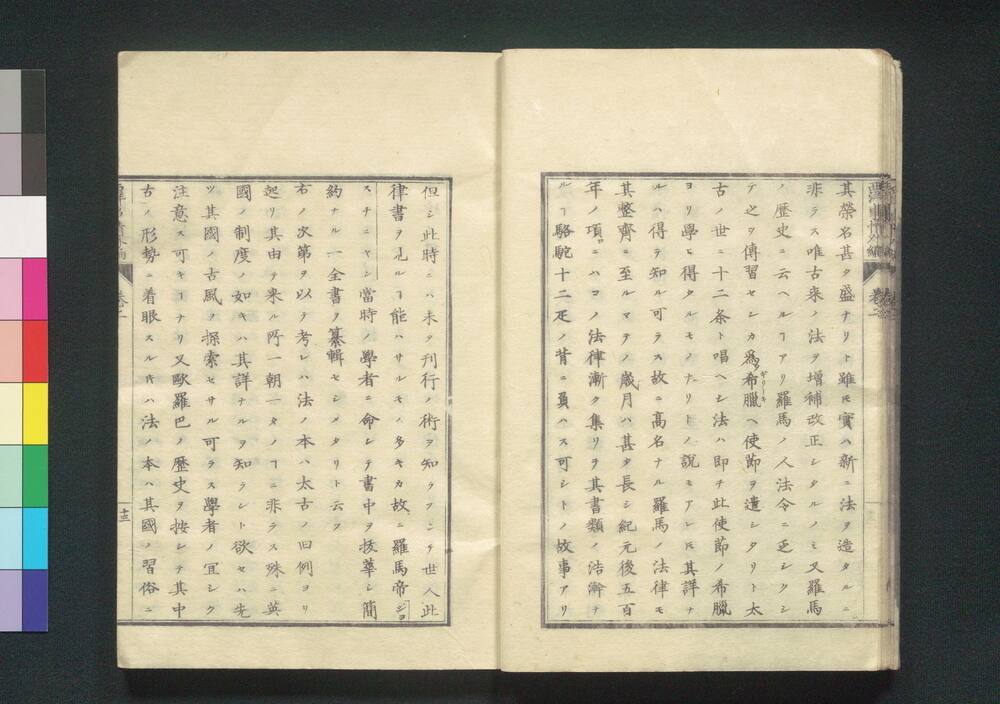 其榮名甚タ盛ナリト雖𪜈實ハ新ニ法ヲ造タルニ
非ラス唯古来ノ法ヲ增補改正シタルノミ又羅馬
ノ歴史ニ云ヘルヿアリ羅馬ノ人法令ニ乏シクシ
テ之ヲ傳習センカ爲メ希臘ギリーキヘ使節ヲ遣シタリト太
古ノ世ニ十二条ト唱ヘシ法ハ即チ此使節ノ希臘
ヨリ學ヒ得タルモノナリトノ說モアレ𪜈其詳ナ
ルハ得テ知ル可ラス故ニ高名ナル羅馬ノ法律モ
其整齊ニ至ルマテノ歲月ハ甚タ長シ紀元後五百
年ノ項ニハコノ法律漸ク集リテ其書類ノ浩瀚ナ
ルヿ駱駝十二疋ノ背ニ負ハス可シトノ故事アリ
但シ此時ニハ未タ刊行ノ術ヲ知ラフンテ世人此
律書ヲ見ルヿ能ハサルモノ多キカ故ニ羅馬帝ジヨ
スチニヤン當時ノ學者ニ命シテ書中ヲ抜萃シ簡
約ナル一全書ヲ纂輯セシメタリト云フ
右ノ次第ヲ以テ考レハ法ノ本ハ太古ノ旧例ヨリ
起リ其由テ来ル所一朝一タノヿニ非ラス殊ニ英
國ノ制度ノ如キハ其詳ナルヲ知ラント欲セハ先
ツ其國ノ古風ヲ探索セサル可ラス學者ノ宜シク
注意ス可キヿナリ又歐羅巴ノ歴史ヲ按シテ其中
古ノ形勢ニ着眼スル𪜈ハ法ノ本ハ其國ノ習俗ニ
卷二
十三